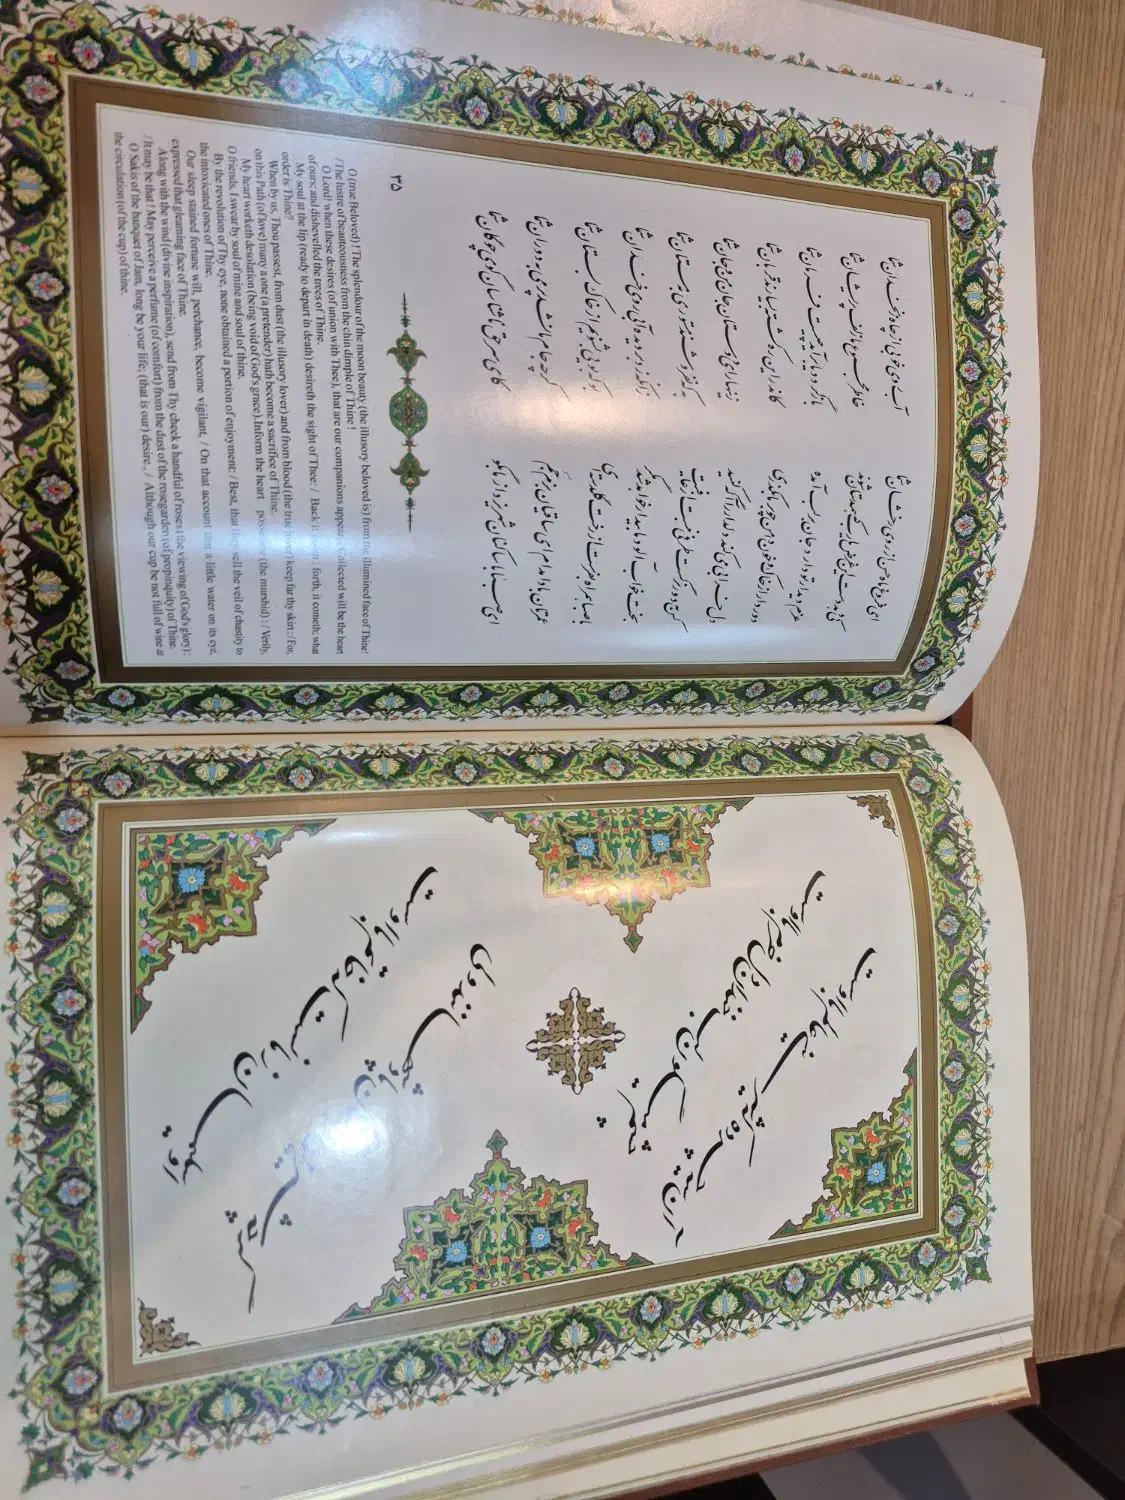 آن سیه چرده که شیرینی عالم با اوست
چشم میگون لب خندان دل خرم با اوست
گرچه شیرین دهنان پادشهانند ولی
او سلیمان زمان است که خاتم با اوست
ای فروغ ماه حسن از روی رخشان شما آب روی خوبی از چاه زنخدان شما
کی دهد دست این غرض یارب که همدستان شوند خاطر مجموع ما زلف پریشان شما
عزم دیدار تو دارد جان بر لب آمده بازگردد یا برآید چیست فرمان شما
دور دار از خاک و خون دامن چو بر ما بگذری کاندرین ره کشته بسیارند قربان شما
دل خرابی می‌کند دلدار را آگه کنید زینهار ای دوستان جان من و جان شما
کس به دور نرگست طرفی نبست از عافیت به که نفروشند مستوری به مستان شما
بخت خواب آلود ما بیدار خواهد شد مگر زانکه زد بر دیده آبی روی رخشان شما
با صبا همراه بفرست از رخت گلدسته‌ای بو که بویی بشنویم از خاک بستان شما
عمرتان بادا مدام ای ساقیان بزم جم گرچه جام ما نشد پر می به دوران شما
ای صبا با ساکنان شهر یزد از ما بگو کای سر حق ناشناسان گوی چوگان شما
۳۵
O (true Beloved) ! The splendour of the moon beauty (the illusory beloved is) from the illumined face of Thine!
/The lustre of beauteousness from the chin dimple of Thine !
O Lord! when these desires (of union with Thee), that are our companions appear, / Collected will be the heart
of ours; and dishevelled the tress of Thine.
My soul at the lip (ready to depart in death) desireth the sight of Thee: / Back it goeth ; forth, it cometh; what
order is Thine?
When by us, Thou passest, from dust (the illusory lover) and from blood (the true lover) keep far thy skirt : / For,
on this Path (of love) many a one (a pretender) hath become a sacrifice of Thine.
My heart worketh desolation (being void of God's grace).Inform the heart possessor (the murshid) : / Verily,
O friends, I swear by soul of mine and soul of thine.
By the revolution of Thy eye, none obtained a portion of enjoyment: / Best, that they sell the veil of chastity to
the intoxicated ones of Thine.
Our sleep stained fortune will, perchance, become vigilant, / On that account that a little water on its eye,
expressed that gleaming face of Thine.
Along with the wind (divine inspiration), send from Thy cheek a handful of roses ( the viewing of God's glory) :
/ It may be that ! May perceive a perfume (of comfort) from the dust of the rosegarden (of propinquity) of Thine.
O Sakis of the banquet of Jam, long be your life; (that is our) desire., / Although our cup be not full of wine at
the circulation (of the cup) of thine.